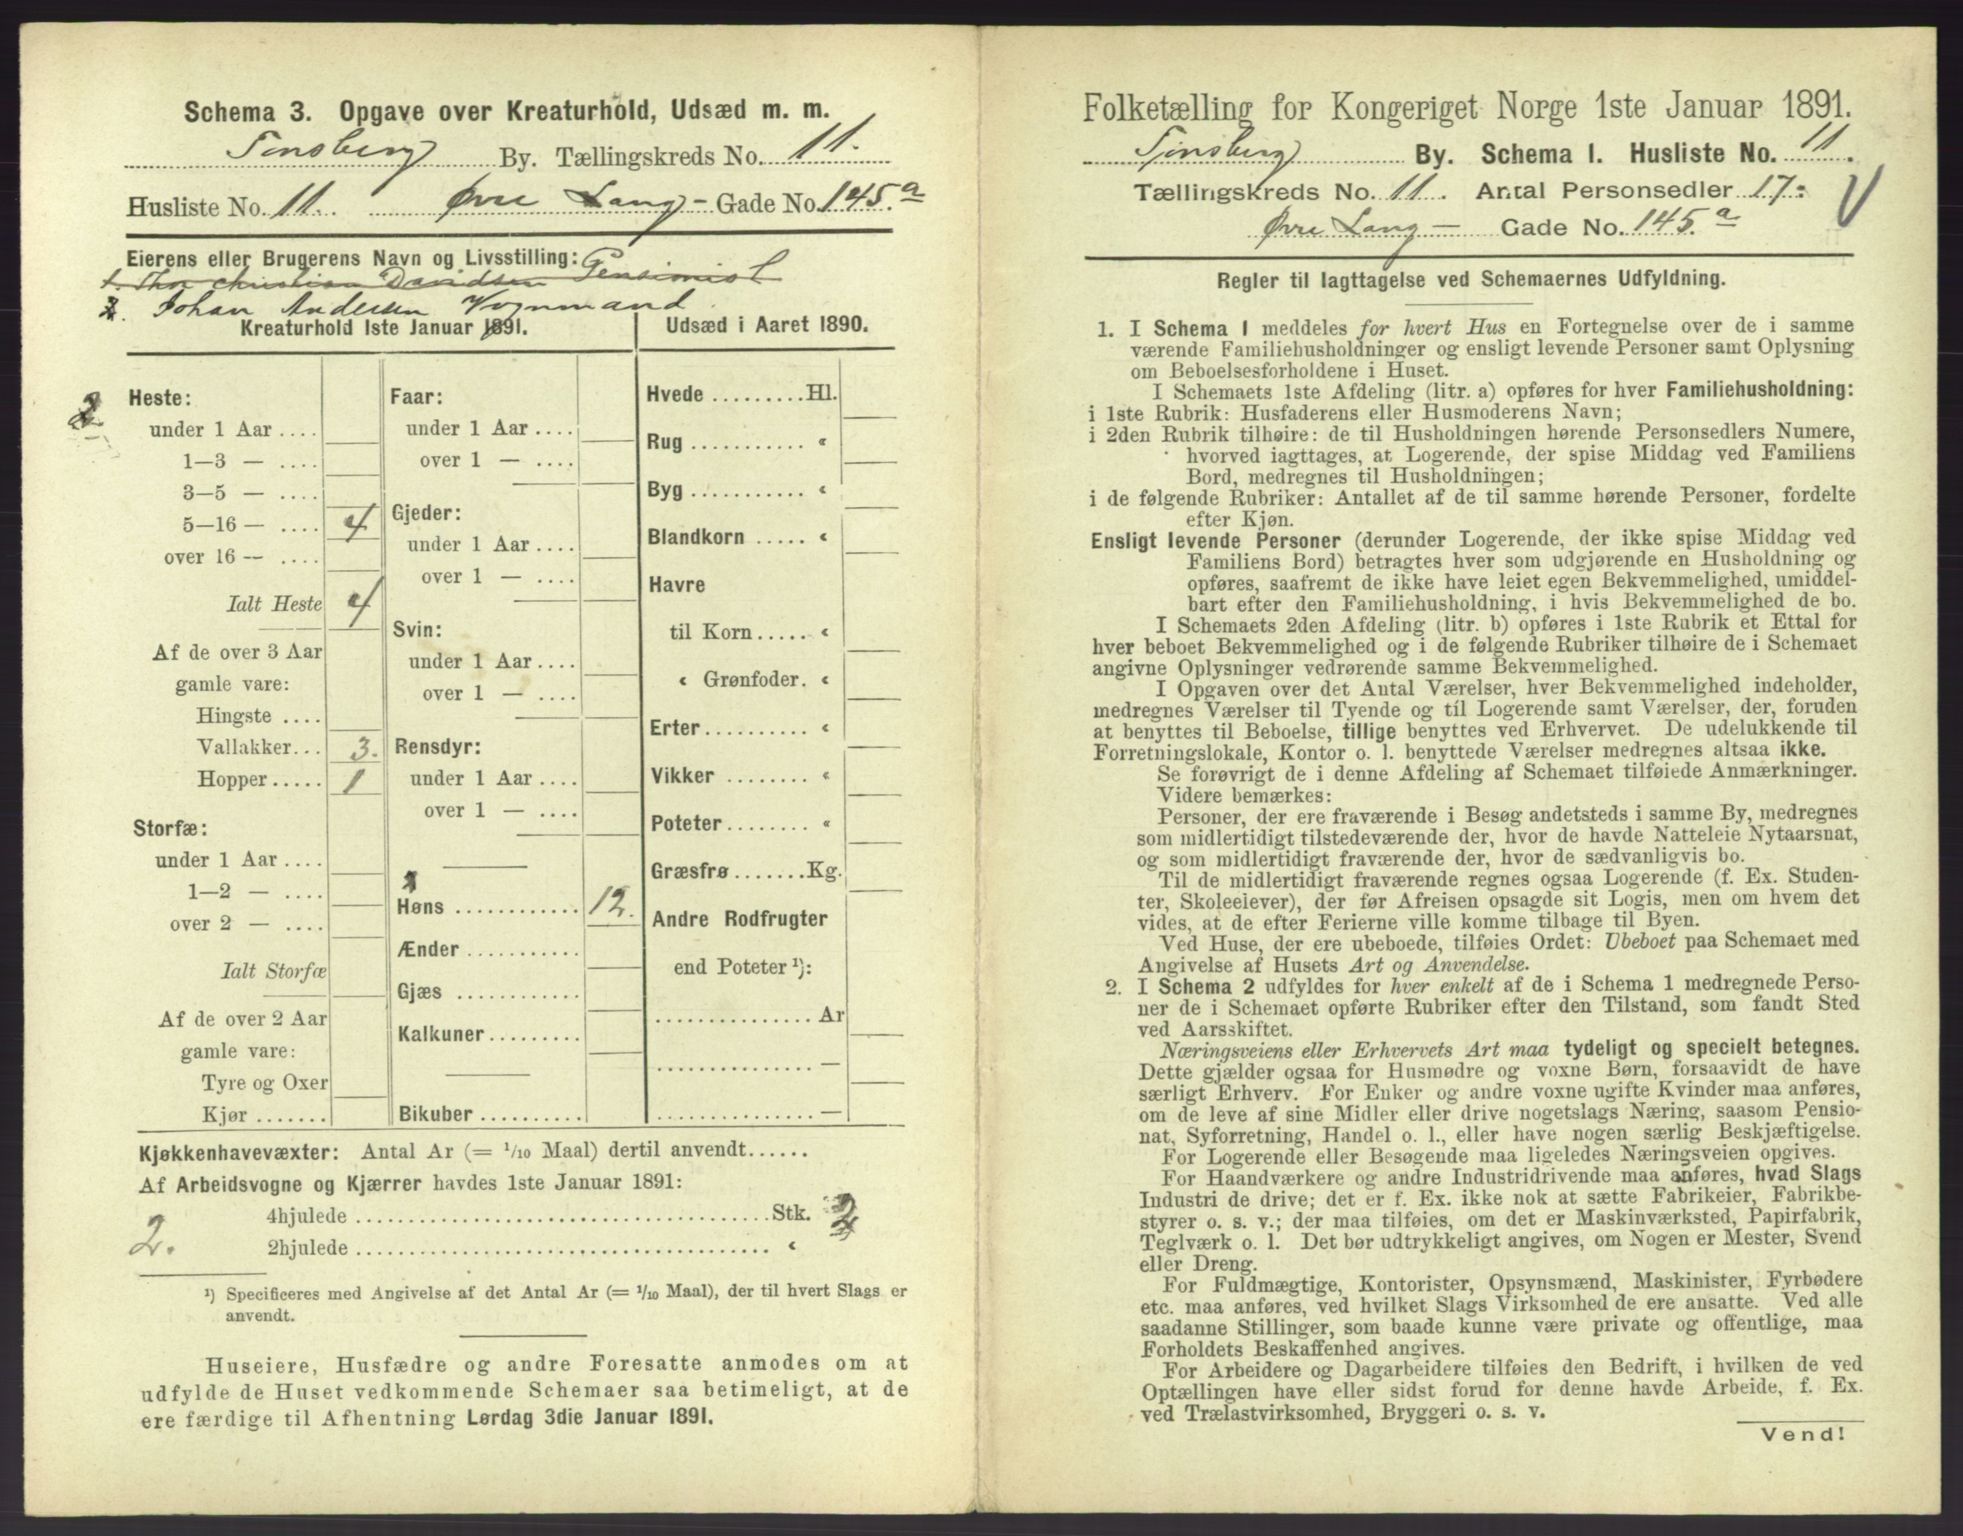 Schema 3. Opgave over Kreaturhold, Udsæd m. m.
Tönsberg By. Tællingskreds No. 11.
Husliste No. 11. Øvre Lang - Gade No. 145.a
Eierens eller Brugerens Navn og Livsstilling: Pensionist
1. Thor Christian Davidsen
2. Johan Andersen Vognmand.
Kreaturhold 1ste Januar 1891.
Udsæd i Aaret 1890.
2
Heste:
under 1 Aar ....
1—3 — ....
3—5 — ....
5—16 — .... 4
over 16 — ....
Ialt Heste 4
Af de over 3 Aar
gamle vare:
Hingste ....
Vallakker... 3.
Hopper..... 1
Storfæ:
under 1 Aar ....
1—2 — ....
over 2 — ....
Ialt Storfæ
Af de over 2 Aar
gamle vare:
Tyre og Oxer
Kjør .......
Faar:
under 1 Aar ....
over 1 — ....
Gjeder:
under 1 Aar ....
over 1 — ....
Svin:
under 1 Aar ....
over 1 — ....
Rensdyr:
under 1 Aar ....
over 1 — ....
1
Høns ............ 12.
Ænder ...........
Gjæs ............
Kalkuner.........
Bikuber ..........
Hvede .........Hl.
Rug ........... «
Byg ........... «
Blandkorn ..... «
Havre
til Korn..... «
« Grønfoder. «
Erter.......... «
Vikker ........ «
Poteter........ «
Græsfrø.......Kg.
Andre Rodfrugter
end Poteter ¹):
............... Ar
............... —
............... —
Kjøkkenhavevæxter: Antal Ar (= 1/10 Maal) dertil anvendt......
Af Arbeidsvogne og Kjærrer havdes 1ste Januar 1891:
4hjulede ........................................Stk. 2
2. 2hjulede ........................................ «
¹) Specificeres med Angivelse af det Antal Ar (= 1/10 Maal), der til hvert Slags er
anvendt.
Huseiere, Husfædre og andre Foresatte anmodes om at
udfylde de Huset vedkommende Schemaer saa betimeligt, at de
ere færdige til Afhentning Lørdag 3die Januar 1891.
Folketælling for Kongeriget Norge 1ste Januar 1891.
Tönsberg By. Schema 1. Husliste No. 11.
Tællingskreds No. 11. Antal Personsedler 17.
Øvre Lang — Gade No. 145.a
Regler til Iagttagelse ved Schemaernes Udfyldning.
1. I Schema 1 meddeles for hvert Hus en Fortegnelse over de i samme
værende Familiehusholdninger og ensligt levende Personer samt Oplysning
om Beboelsesforholdene i Huset.
I Schemaets 1ste Afdeling (litr. a) opføres for hver Familiehusholdning:
i 1ste Rubrik: Husfaderens eller Husmoderens Navn;
i 2den Rubrik tilhøire: de til Husholdningen hørende Personsedlers Numere,
hvorved iagttages, at Logerende, der spise Middag ved Familiens
Bord, medregnes til Husholdningen;
i de følgende Rubriker: Antallet af de til samme hørende Personer, fordelte
efter Kjøn.
Ensligt levende Personer (derunder Logerende, der ikke spise Middag ved
Familiens Bord) betragtes hver som udgjørende en Husholdning og
opføres, saafremt de ikke have leiet egen Bekvemmelighed, umiddel-
bart efter den Familiehusholdning, i hvis Bekvemmelighed de bo.
I Schemaets 2den Afdeling (litr. b) opføres i 1ste Rubrik et Ettal for
hver beboet Bekvemmelighed og i de følgende Rubriker tilhøire de i Schemaet
angivne Oplysninger vedrørende samme Bekvemmelighed.
I Opgaven over det Antal Værelser, hver Bekvemmelighed indeholder,
medregnes Værelser til Tyende og til Logerende samt Værelser, der, foruden
at benyttes til Beboelse, tillige benyttes ved Erhvervet. De udelukkende til
Forretningslokale, Kontor o. l. benyttede Værelser medregnes altsaa ikke.
Se forøvrigt de i denne Afdeling af Schemaet tilføiede Anmærkninger.
Videre bemærkes:
Personer, der ere fraværende i Besøg andetsteds i samme By, medregnes
som midlertidigt tilstedeværende der, hvor de havde Natteleie Nytaarsnat,
og som midlertidigt fraværende der, hvor de sædvanligvis bo.
Til de midlertidigt fraværende regnes ogsaa Logerende (f. Ex. Studen-
ter, Skoleeiever), der før Afreisen opsagde sit Logis, men om hvem det
vides, at de efter Ferierne ville komme tilbage til Byen.
Ved Huse, der ere ubeboede, tilføies Ordet: Ubeboet paa Schemaet med
Angivelse af Husets Art og Anvendelse.
2. I Schema 2 udfyldes for hver enkelt af de i Schema 1 medregnede Perso-
ner de i Schemaet opførte Rubriker efter den Tilstand, som fandt Sted
ved Aarsskiftet.
Næringsveiens eller Erhvervets Art maa tydeligt og specielt betegnes.
Dette gjælder ogsaa for Husmødre og voxne Børn, forsaavidt de have
særligt Erhverv. For Enker og andre voxne ugifte Kvinder maa anføres,
om de leve af sine Midler eller drive nogetslags Næring, saasom Pensio-
nat, Syforretning, Handel o. l., eller have nogen særlig Beskjæftigelse.
For Logerende eller Besøgende maa ligeledes Næringsveien opgives.
For Haandværkere og andre Industridrivende maa anføres, hvad Slags
Industri de drive; det er f. Ex. ikke nok at sætte Fabrikeier, Fabrikbe-
styrer o. s. v.; der maa tilføies, om det er Maskinværksted, Papirfabrik,
Teglværk o. l. Det bør udtrykkeligt angives, om Nogen er Mester, Svend
eller Dreng.
For Fuldmægtige, Kontorister, Opsynsmænd, Maskinister, Fyrbødere
etc. maa anføres, ved hvilket Slags Virksomhed de ere ansatte. Ved alle
saadanne Stillinger, som baade kunne være private og offentlige, maa
Forholdets Beskaffenhed angives.
For Arbeidere og Dagarbeidere tilføies den Bedrift, i hvilken de ved
Optællingen have eller sidst forud for denne havde Arbeide, f. Ex.
ved Trælastvirksomhed, Bryggeri o. s. v.
Vend!